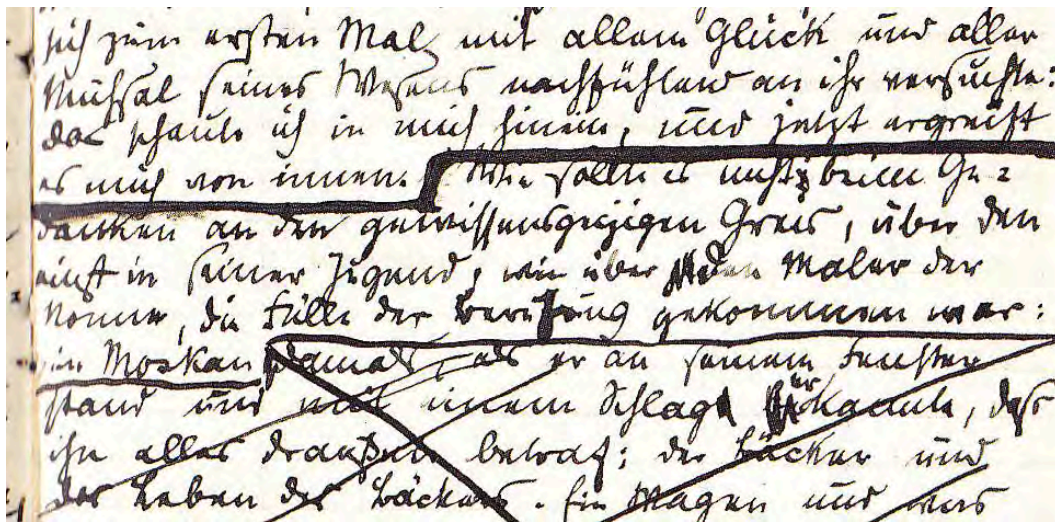 sich zum ersten Mal, mit allem Glück und aller
Mühsal seines Wesens nachfühlend an ihr versuchte:
das schaute ich in mich hinein, und jetzt ergreift
es mich von innen. Wie sollte es nicht beim Ge=
danken an den gewissensgeizigen Greis, über den
einst in seiner Jugend, wie über den Maler der
Nonne, die Fülle der Berufung gekommen war:
in Moskau damals, als er an seinem Fenster
stand und mit einem Schlag erkannte, daß
ihn alles draußen betraf: der Bäcker und
das Leben des Bäckers. Ein Wagen und was